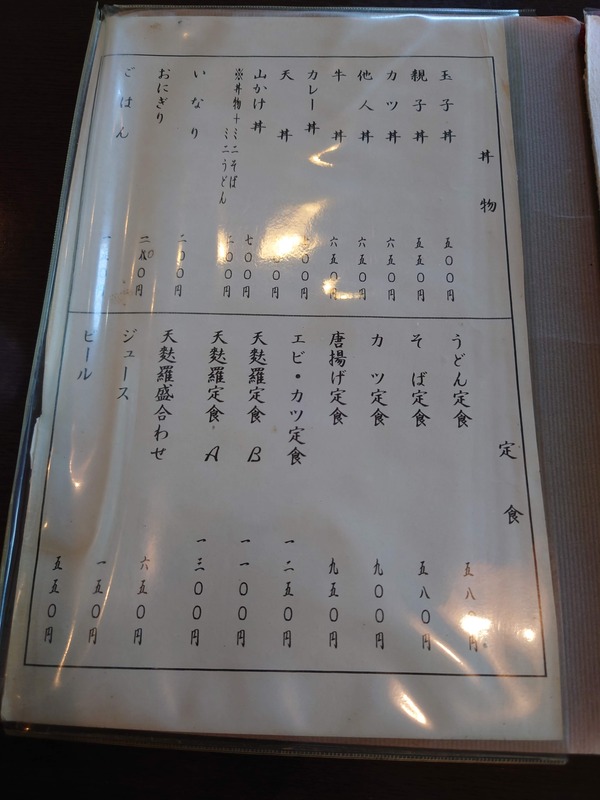 丼物
玉子丼 五〇〇円
親子丼 五五〇円
カツ丼 六五〇円
他人丼 六五〇円
牛丼 六五〇円
カレー丼
天丼
山かけ丼 七〇〇円
※丼物＋ミニそば
ミニうどん 二〇〇円
いなり 二〇〇円
おにぎり
ごはん
定食
うどん定食 五八〇円
そば定食 五八〇円
カツ定食 九〇〇円
唐揚げ定食 九五〇円
エビ・カツ定食 一二五〇円
天麩羅定食 B 一一〇〇円
天麩羅定食 A 一三〇〇円
天麩羅盛合わせ 六五〇円
ジュース 一五〇円
ビール 五五〇円